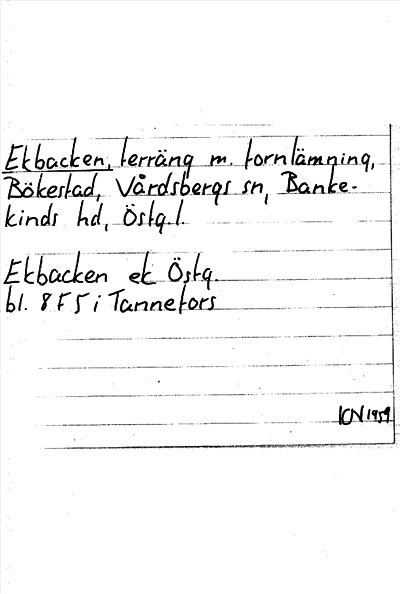 Ekbacken, terräng m. fornlämning,
Bökestad, Vårdsbergs sn, Banke-
kinds hd, Östg. l.
Ekbacken ek Östg.
bl. 8 F 5 i Tannefors
ICN 1959